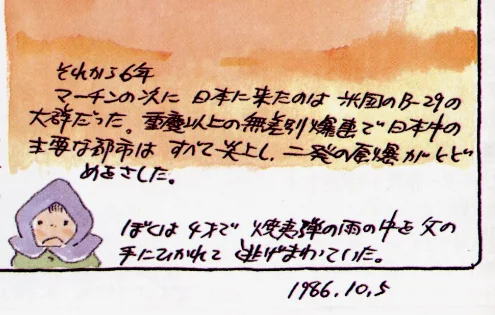 それから6年
マーチンの次に 日本に来たのは 米国のB-29の
大群だった。重慶以上の無差別爆撃で日本中の
主要な都市は すべて炎上し、二発の原爆がとど
めをさした。
ぼくは 4才で 焼夷弾の雨の中を父の
手にひかれて 逃げまわっていた。
1986.10.5